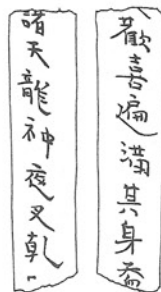 歡喜遍滿其身
諸天龍神夜叉乾